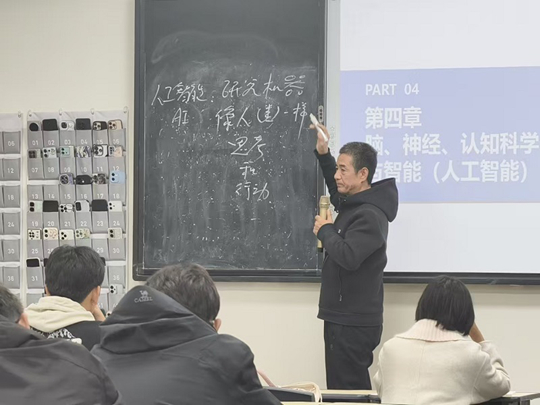 人工智能：研究机器
能 像人(类)一样
思考
和
行动
PART 04
第四章
脑、神经、认知科学
与智能（人工智能）